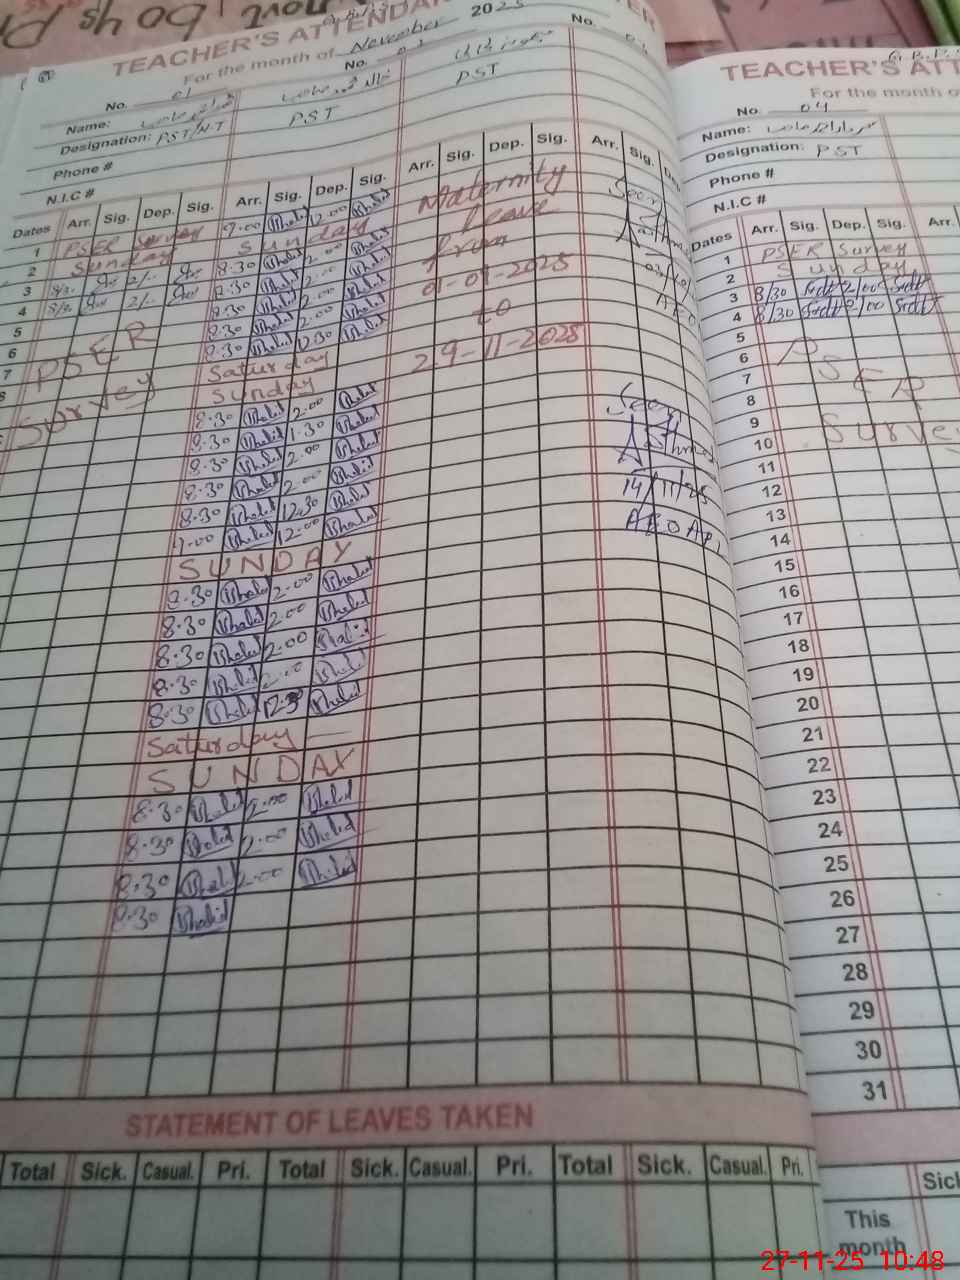 TEACHER'S ATTENDAN
For the month of November 2025
No. 01
No. 02
No. 03
Name:
Designation: PST/NT
PST
PST
Phone #
N.I.C #
Dates Arr. Sig. Dep. Sig. Arr. Sig. Dep. Sig. Arr. Sig. Dep. Sig. Arr. Sig.
1 PSER Survey 9.00 Khalid 12.00 Khalid
2 Sunday Sunday
3 8/30 2/- 8:30 Khalid 2.00 Khalid
4 8/30 2/- 8:30 Khalid 2.00 Khalid
5 8:30 Khalid 2.00 Khalid
6 8:30 Khalid 2.00 Khalid
7 8:30 Khalid 12.30 Khalid
8 Saturday
Sunday
PSER
Survey
8:30 Khalid 2.00 Khalid
8:30 Khalid 1.30 Khalid
8:30 Khalid 2.00 Khalid
8:30 Khalid 2.00 Khalid
8:30 Khalid 12.30 Khalid
9.00 Khalid 12.00 Khalid
SUNDAY
8.30 Khalid 2.00 Khalid
8.30 Khalid 2.00 Khalid
8.30 Khalid 2.00 Khalid
8.30 Khalid 2.00 Khalid
8.30 Khalid 12.30 Khalid
Saturday
SUNDAY
8.30 Khalid 2.00 Khalid
8.30 Khalid 2.00 Khalid
8.30 Khalid 2.00 Khalid
8.30 Khalid
Maternity
leave
from
01-09-2025
to
29-11-2025
Seen
AEO
Seen
14/11/25
AEO
STATEMENT OF LEAVES TAKEN
Total Sick. Casual. Pri. Total Sick. Casual. Pri. Total Sick. Casual. Pri.
TEACHER'S ATTE
For the month o
No. 04
Name:
Designation: PST
Phone #
N.I.C #
Dates Arr. Sig. Dep. Sig. Arr.
1 PSER Survey
2 Sunday
3 8/30 2/00
4 8/30 2/00
5
6
7
8
9
10
PSER
Surve
11
12
13
14
15
16
17
18
19
20
21
22
23
24
25
26
27
28
29
30
31
Sick
This
month
27-11-25 10:48